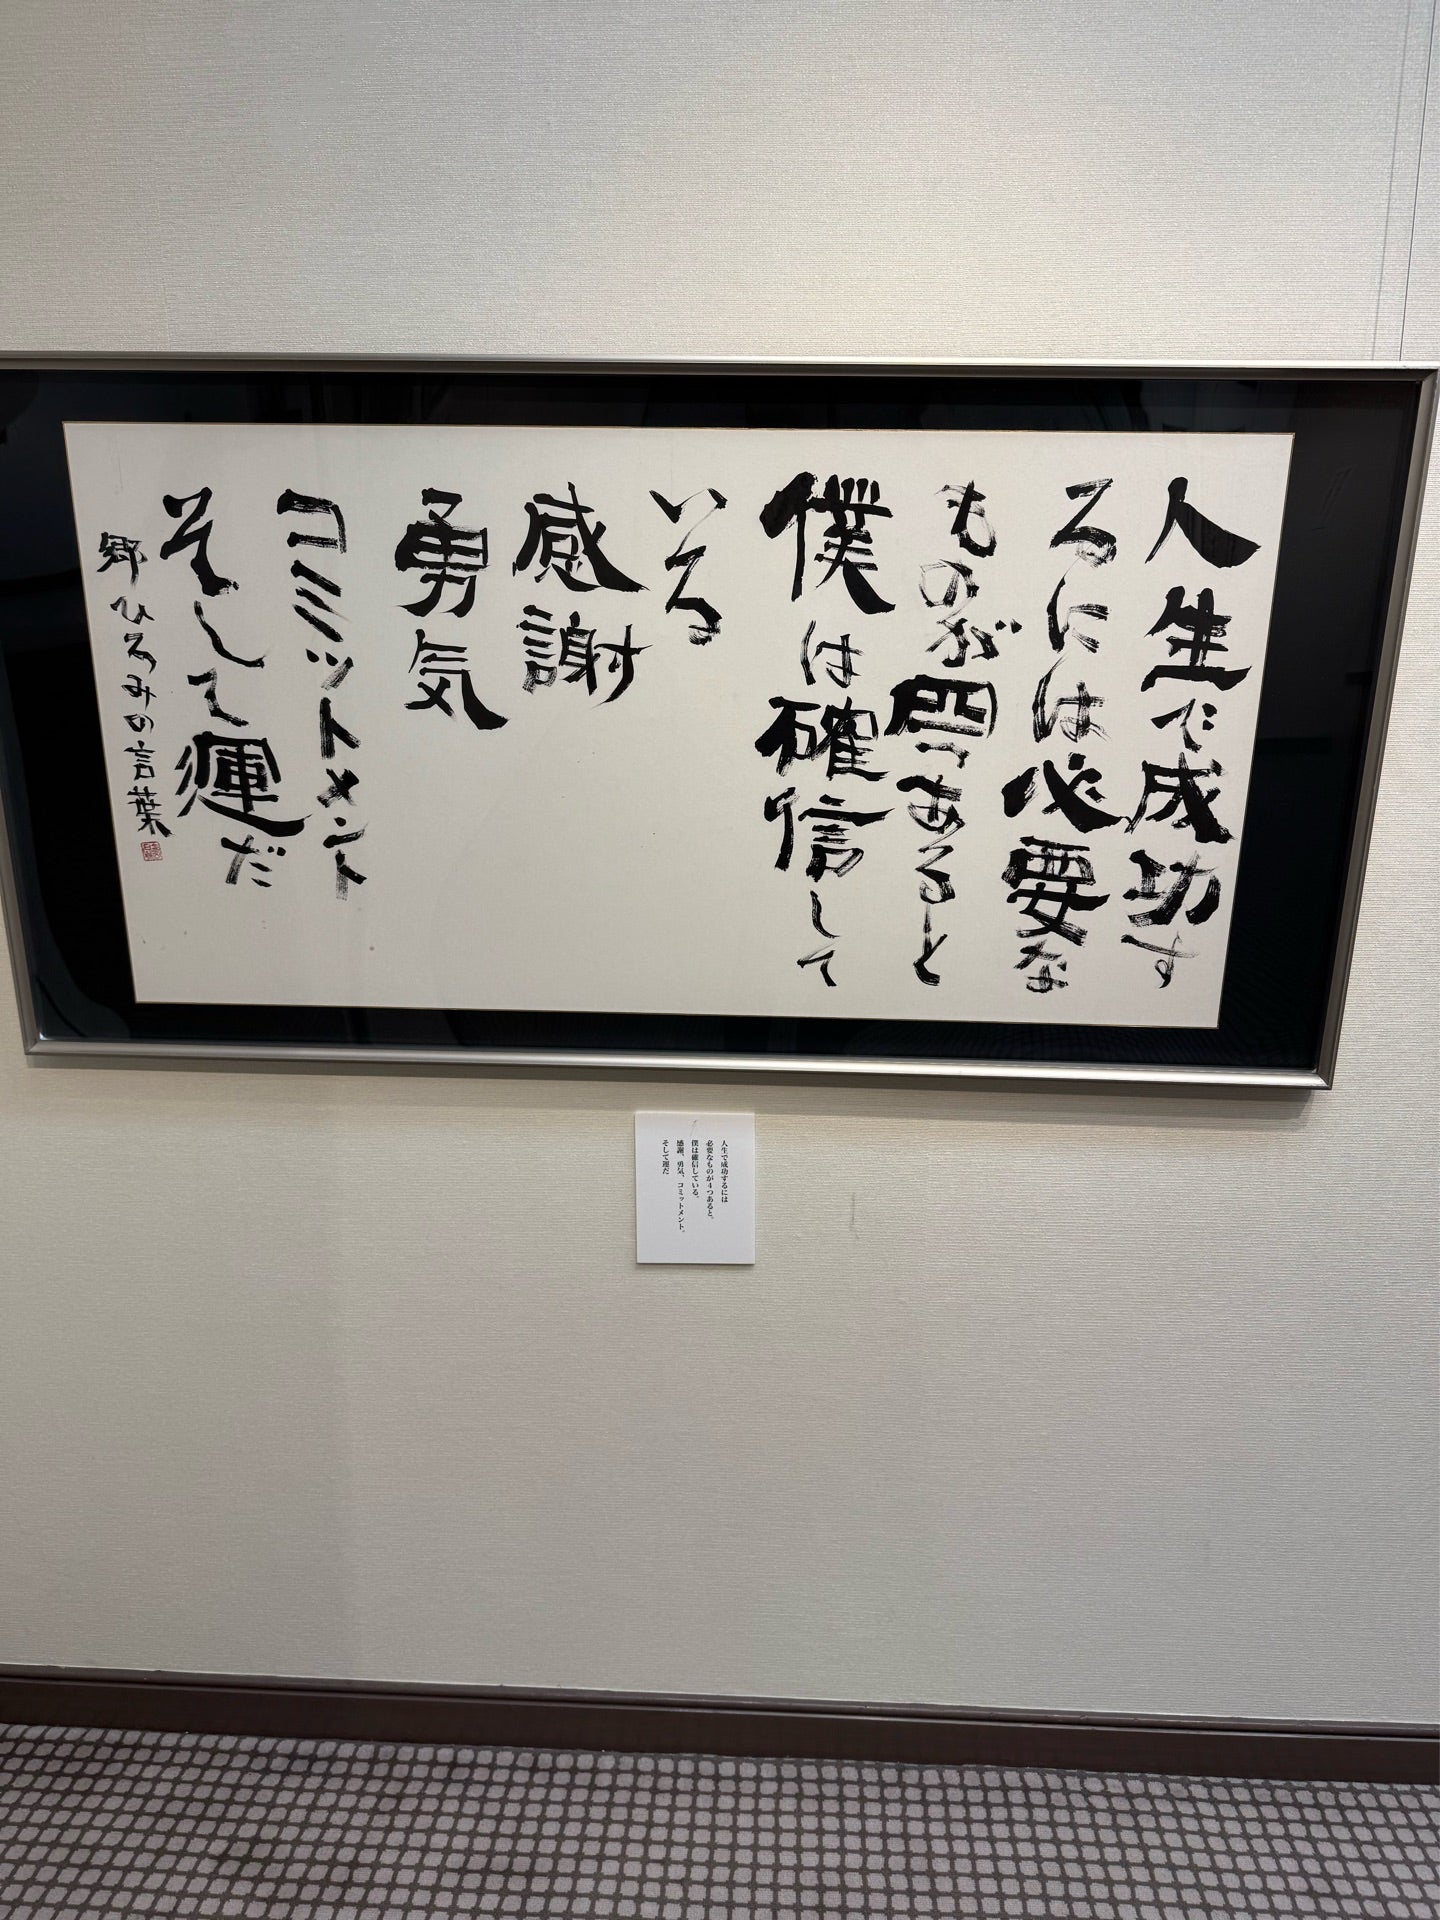 人生で成功す
るには必要な
ものが四つあると
僕は確信して
いる
感謝
勇気
コミットメント
そして運だ
郷ひろみの言葉
人生で成功するには
必要なものが4つあると、
僕は確信している。
感謝、勇気、コミットメント。
そして運だ